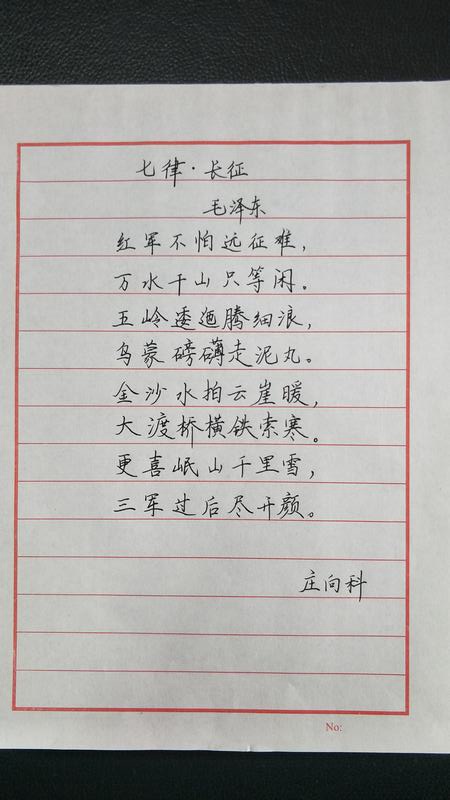 七律·长征
毛泽东
红军不怕远征难，
万水千山只等闲。
五岭逶迤腾细浪，
乌蒙磅礴走泥丸。
金沙水拍云崖暖，
大渡桥横铁索寒。
更喜岷山千里雪，
三军过后尽开颜。
庄向科
No: